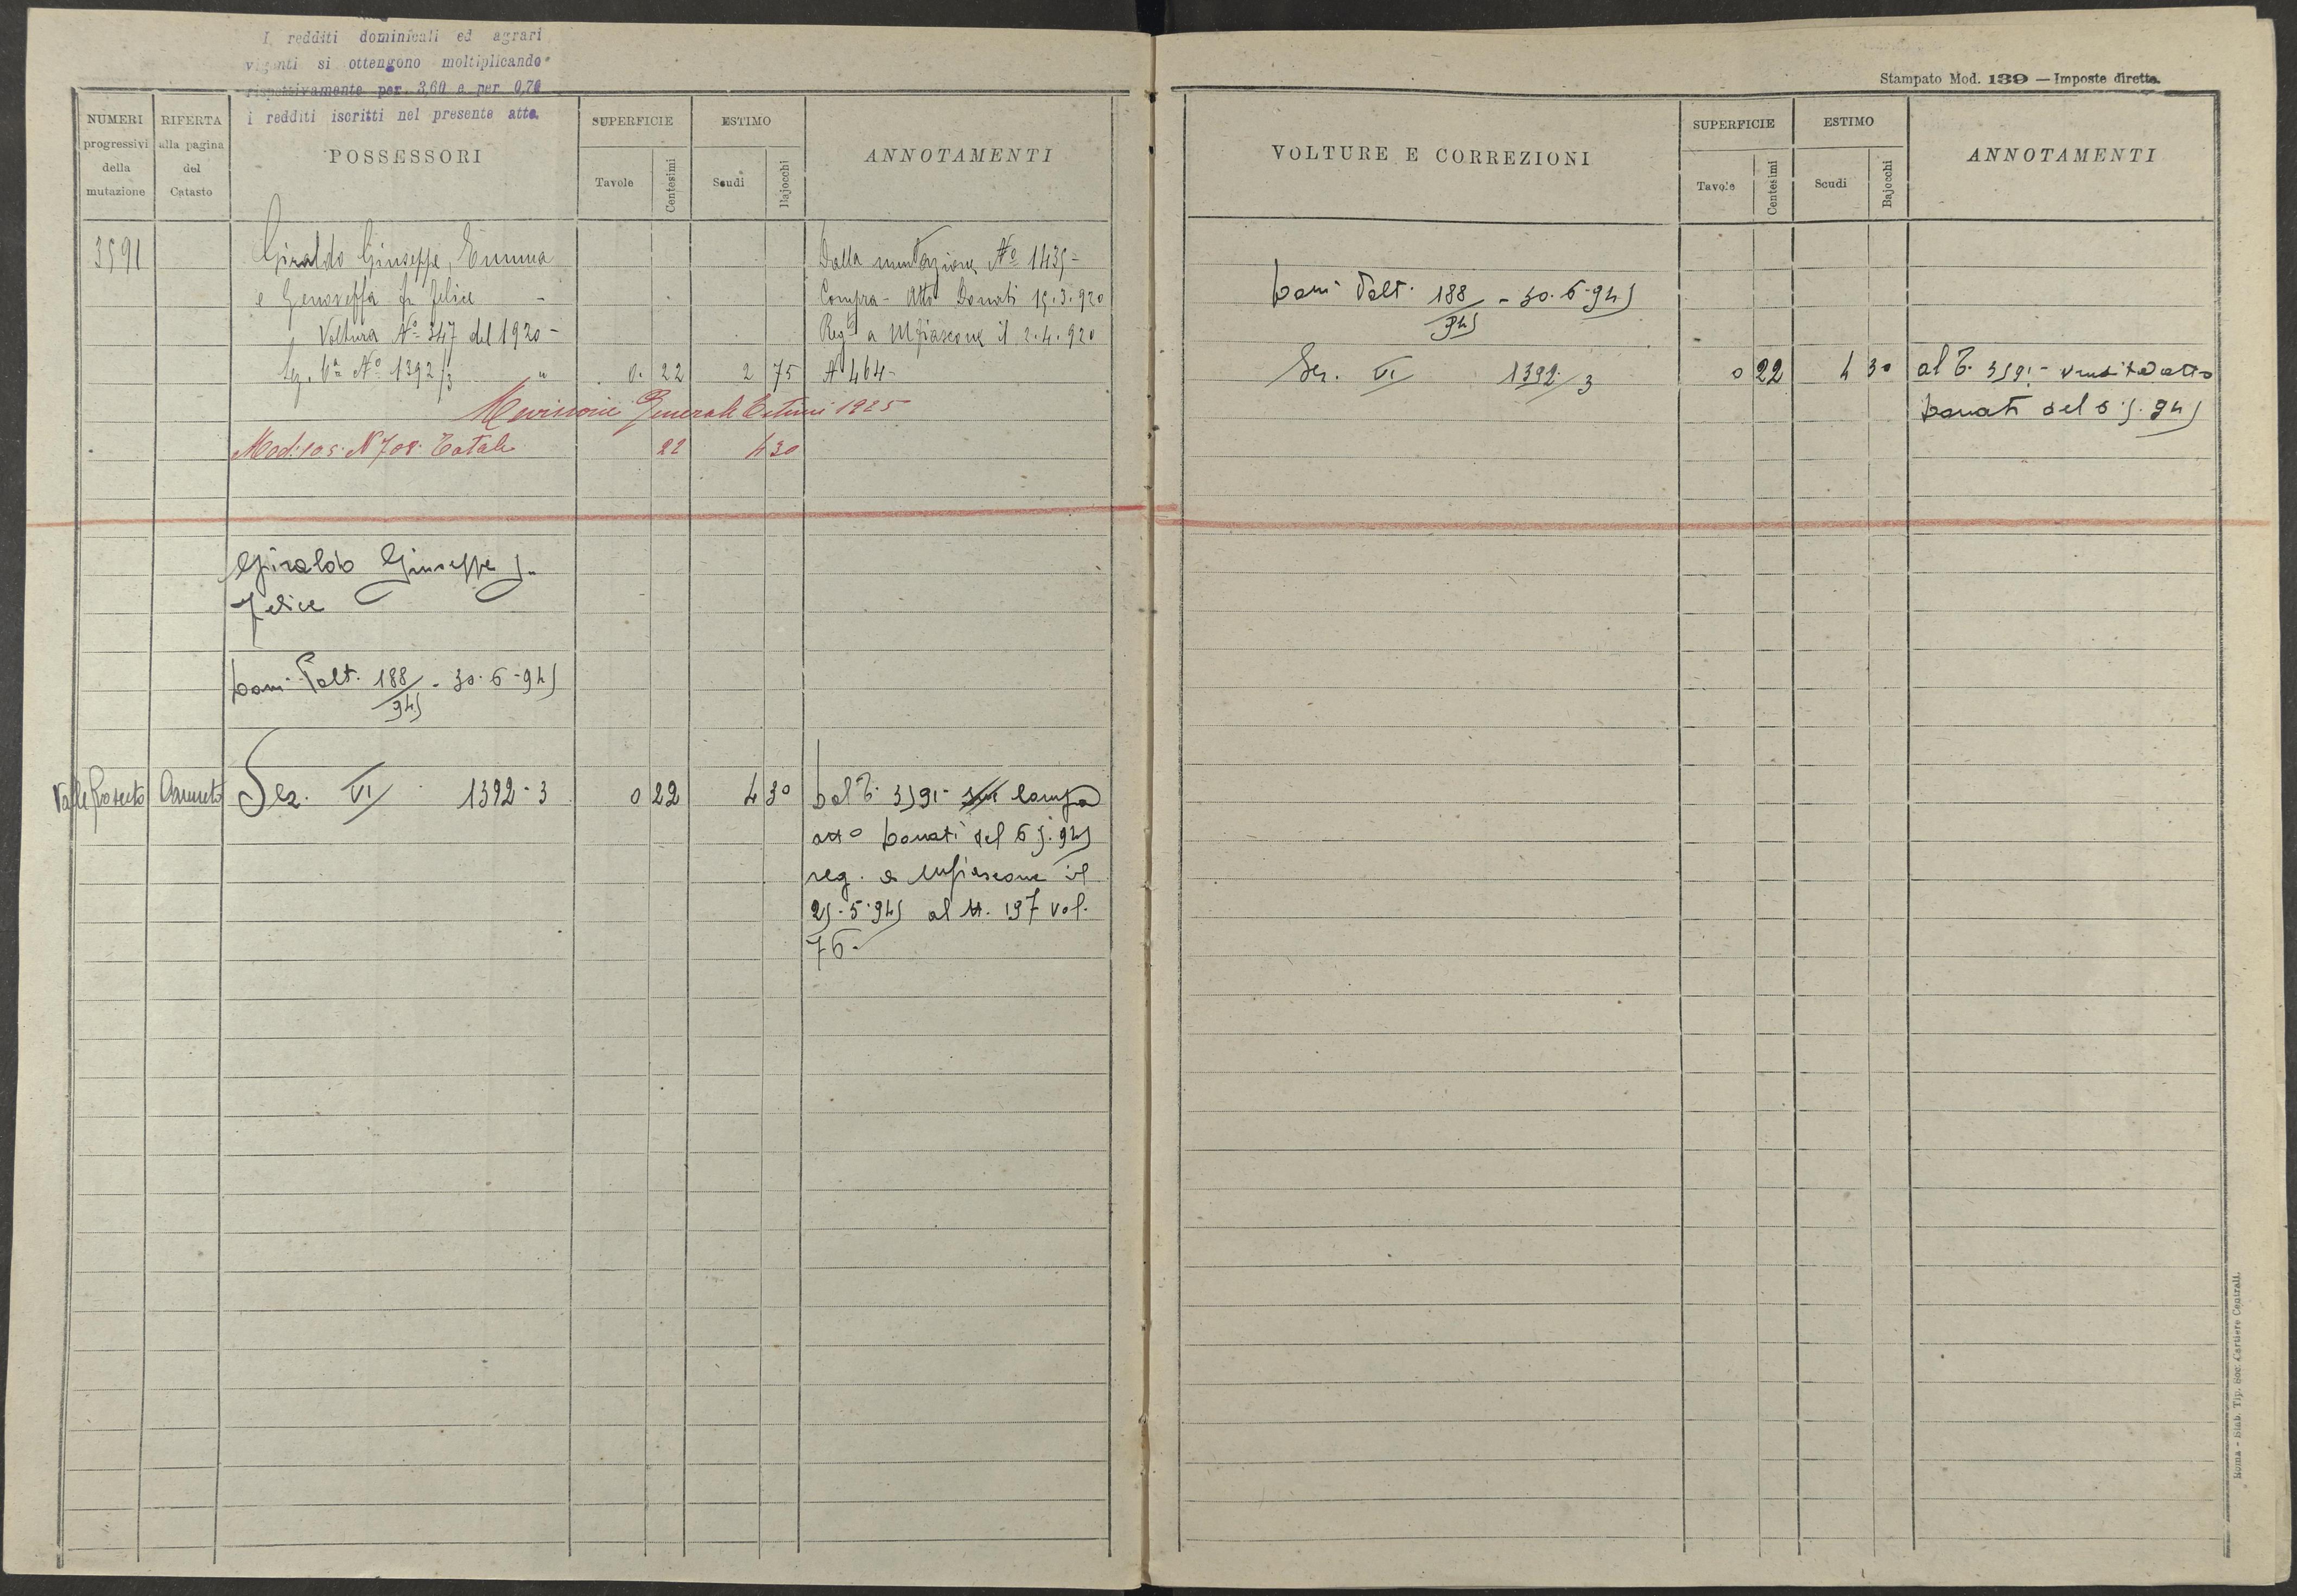 I redditi dominicali ed agrari
vigenti si ottengono moltiplicando
rispettivamente per 3,60 e per 0,70
i redditi iscritti nel presente atto.
NUMERI progressivi della mutazione
RIFERTA alla pagina del Catasto
POSSESSORI
SUPERFICIE
Tavole
Centesimi
ESTIMO
Scudi
Bajocchi
ANNOTAMENTI
3591 Giraldo Giuseppe, Emma Dalla mutazione Nº 1435 -
e Genoveffa fu Felice - Compra - Atto Donati 15.3.920
Voltura Nº 347 del 1920 - Regto a Mfiascone il 2.4.920
Sez. Vª Nº 1392/3 " 0. 22 2 75 Nº 464 -
Revisione Generale Estimi 1925
Mod: 105. N 708. Totale 22 4 30
Giraldo Giuseppe fu
Felice
Dom. Volt. 188/945 - 30.6.945
Sez. VI 1392-3 0 22 4 30 Dal T. 3591 - compra
atto Donati del 6 5.945
reg. a Mfiascone il
25.5.945 al N. 197 vol.
76.
Stampato Mod. 139 — Imposte dirette.
VOLTURE E CORREZIONI
SUPERFICIE
Tavole
Centesimi
ESTIMO
Scudi
Bajocchi
ANNOTAMENTI
Dom. Volt. 188/945 - 30.6.945
Sez. VI 1392/3 0 22 4 30 al T. 3591 - vendita atto
Donati del 6 5.945
Roma - Stab. Tip. Soc. Cartiere Centrali.